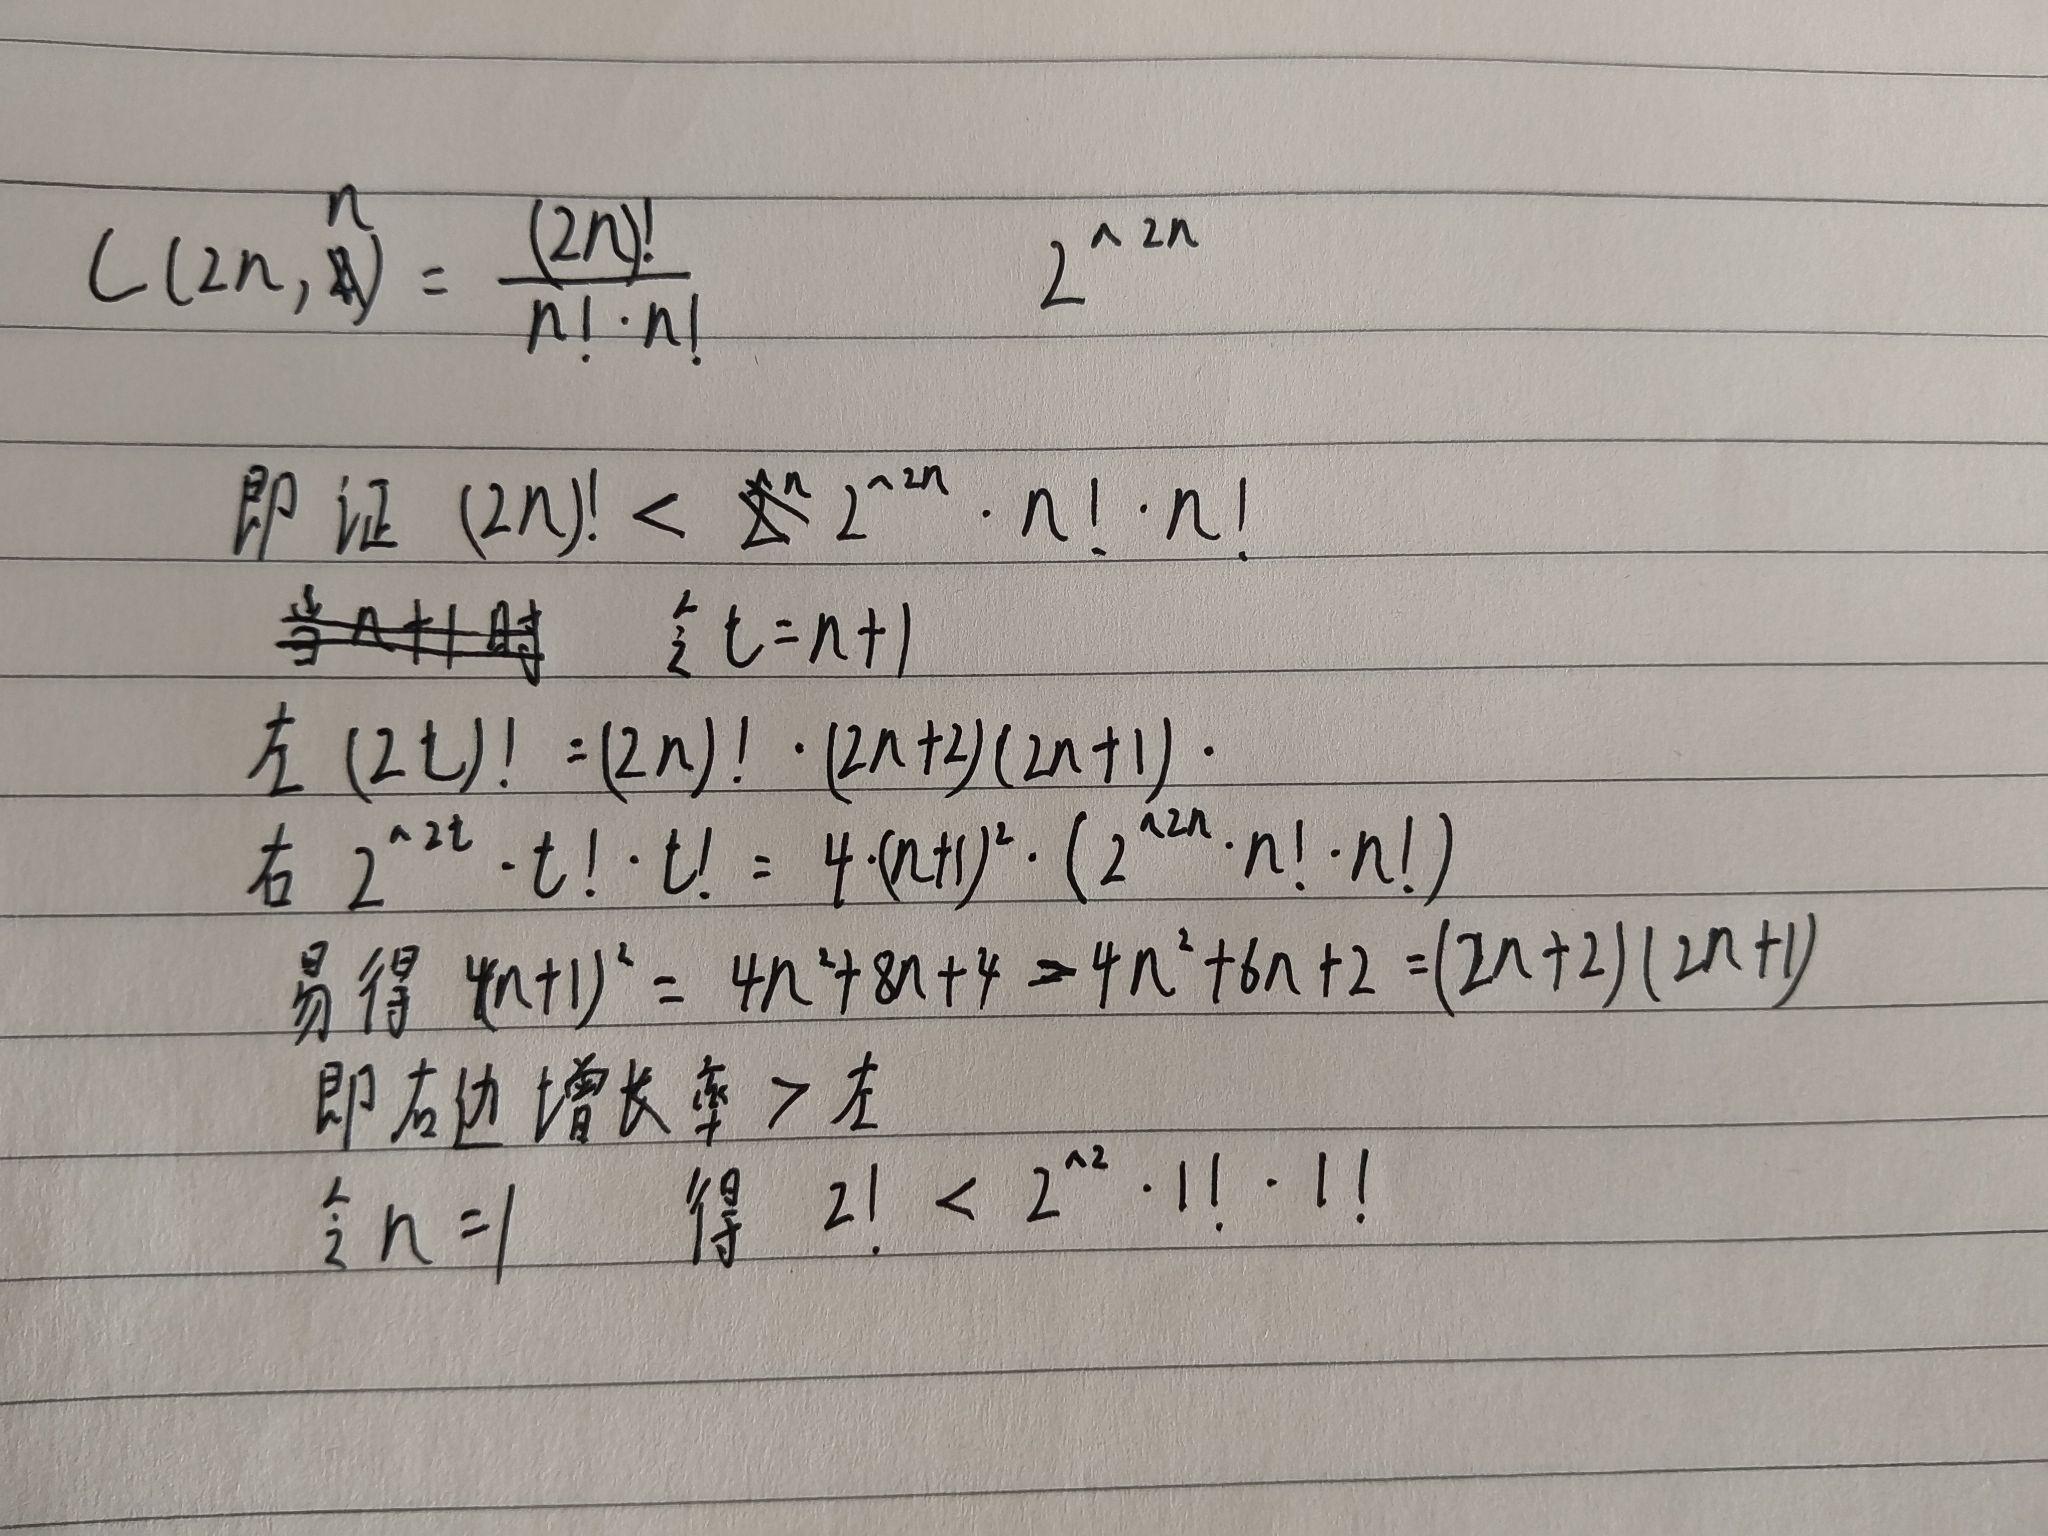 C(2n, n) = (2n)! / n! · n! 2^2n
即证 (2n)! < 2^2n · n! · n!
当n+1时 令 t=n+1
左 (2t)! =(2n)! · (2n+2)(2n+1) ·
右 2^2t · t! · t! = 4·(n+1)² · (2^2n · n! · n!)
易得 4(n+1)² = 4n²+8n+4 > 4n²+6n+2 =(2n+2)(2n+1)
即右边增长率 > 左
令 n=1 得 2! < 2^2 · 1! · 1!